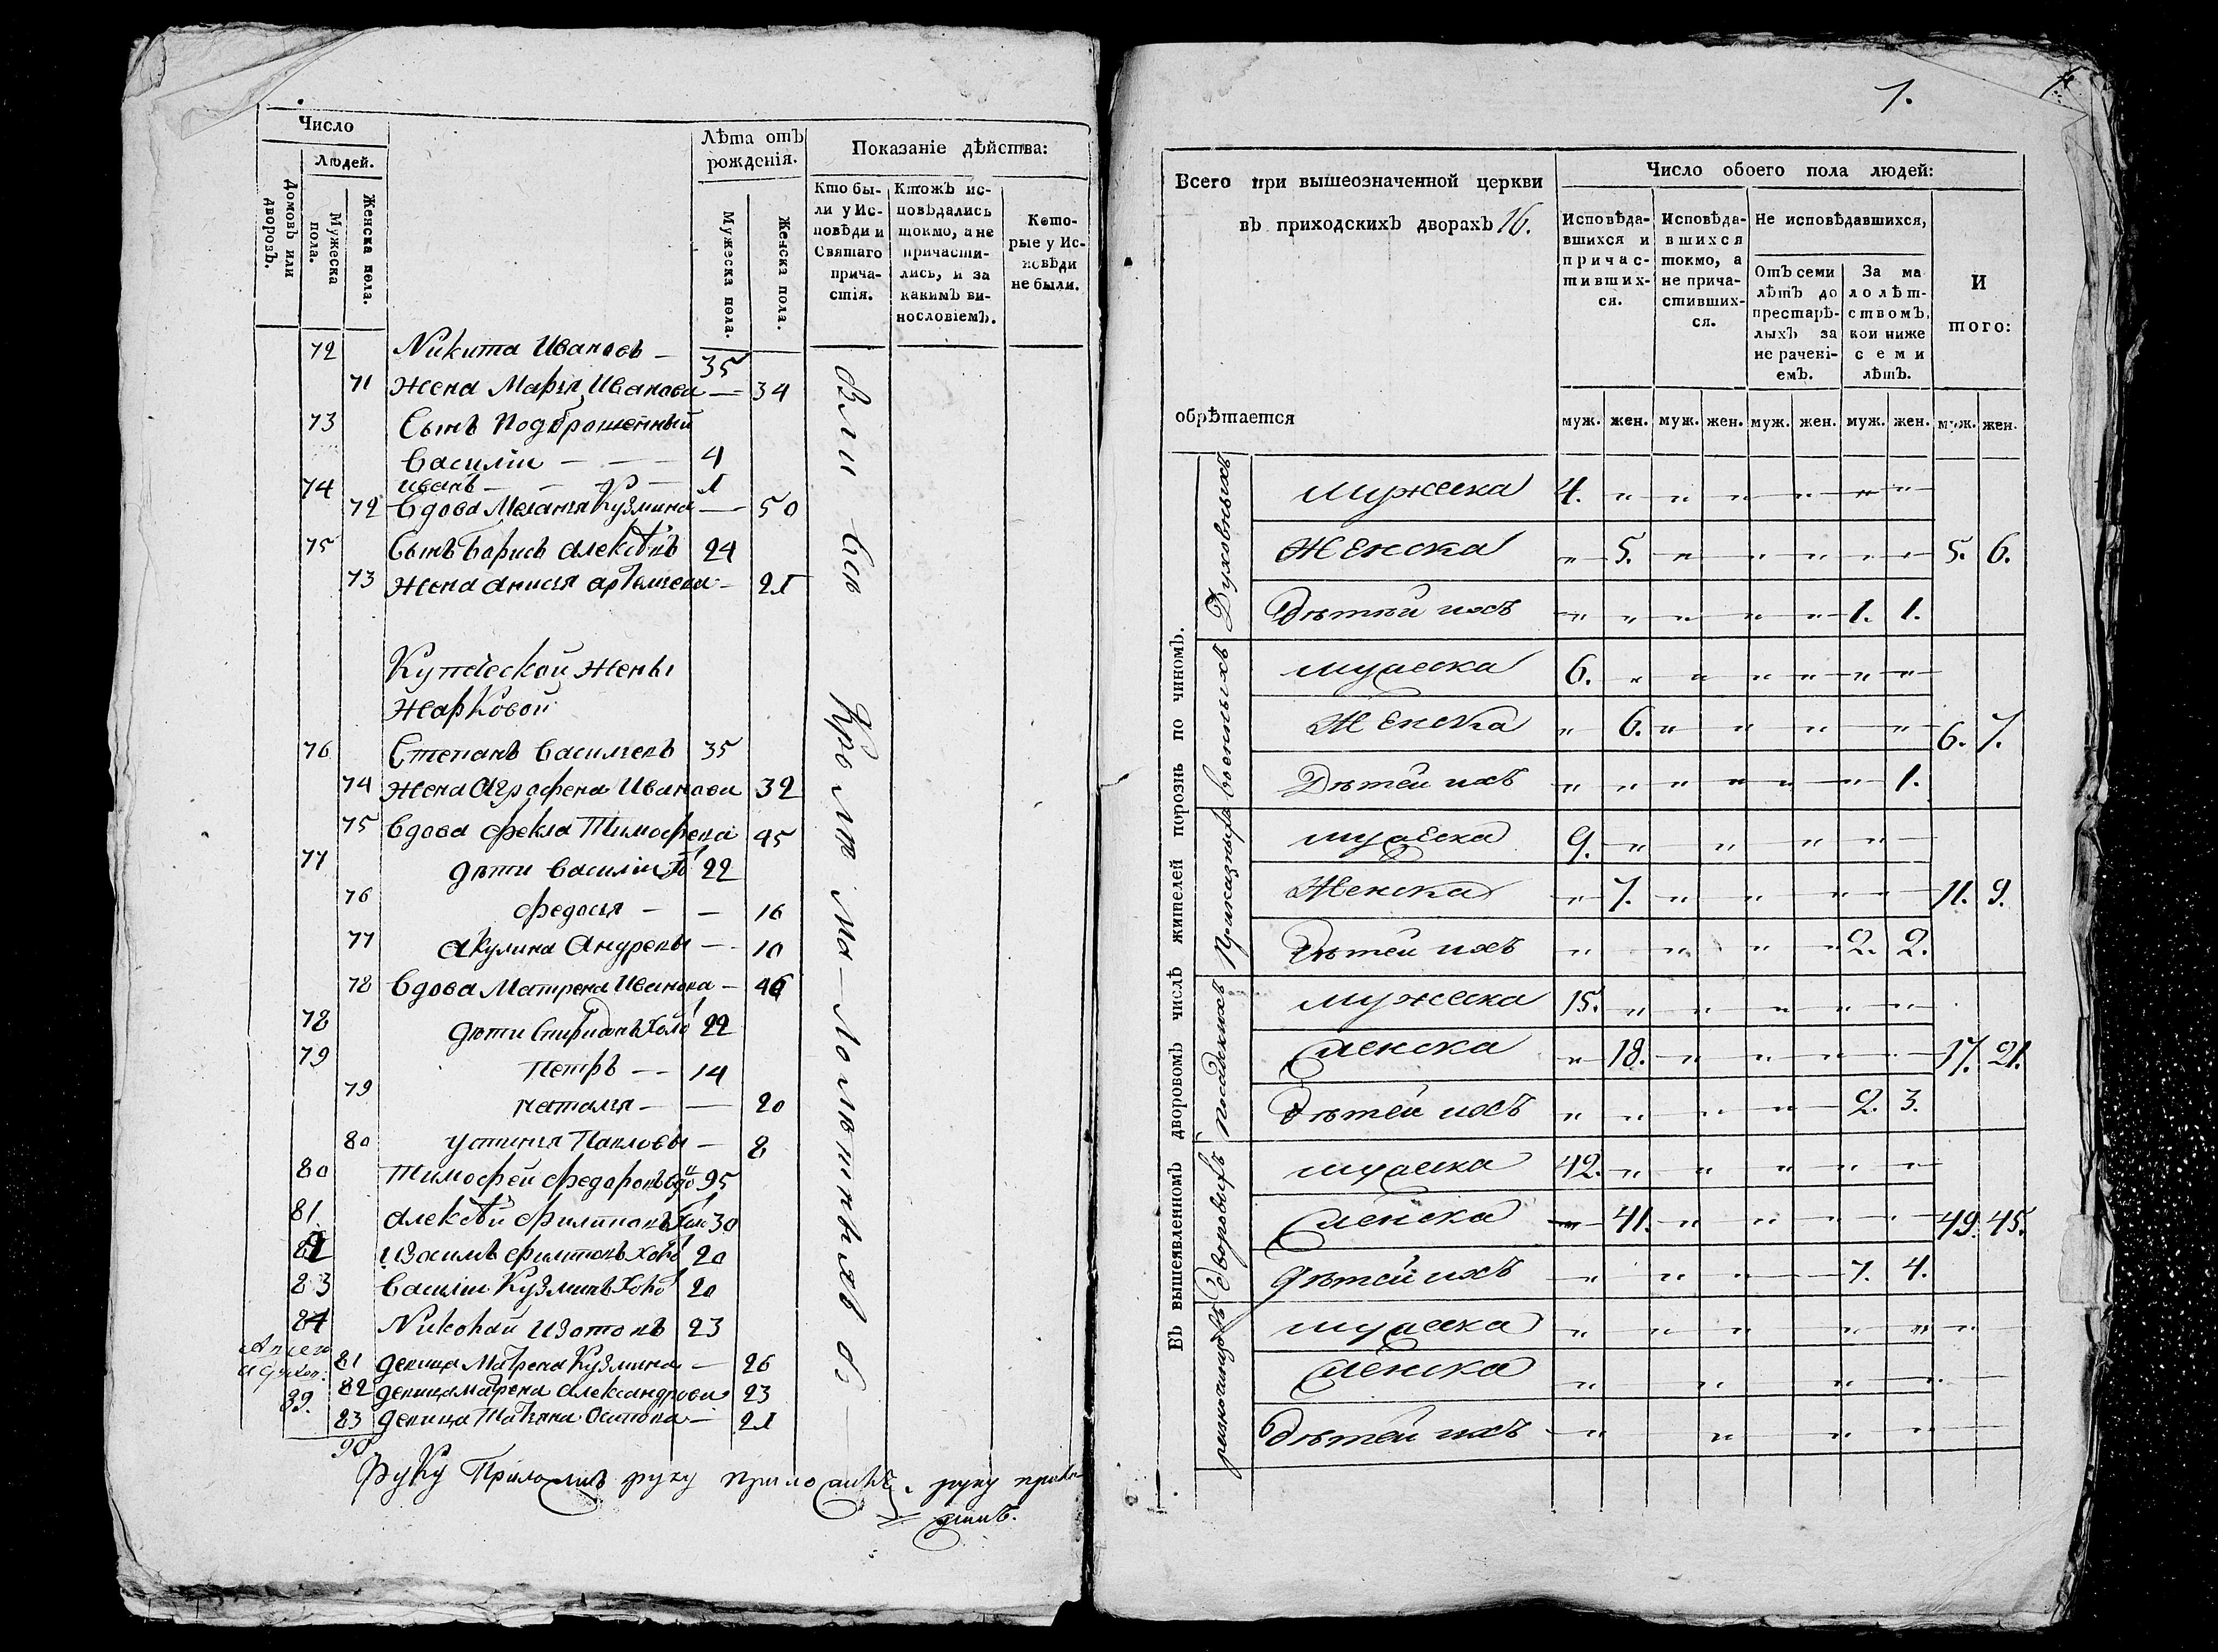 Число
Людей.
Домовъ или дворовъ.
Мужеска пола.
Женска пола.
Лѣта отъ рожденія.
Мужеска пола.
Женска пола.
Показаніе дѣйства:
Кто бы-
ли у Ис-
повѣди и
Святаго
прича-
стія.
Ктожъ ис-
повѣдались
токмо, а не
причасти-
лись, и за
какимъ ви-
нословіемъ.
Кото-
рые у Ис-
повѣди
не были.
72 Никита Ивановъ — 35
71 Жена Марья Иванова — 34
73 Сынъ подброшенный
Василіи — — — 4
74 Иванъ — — — 1
72 Вдова Меланья Кузмина — 50
75 Сынъ Борисъ Алексѣевъ 24
73 Жена Анисья Артемьева — 21
Купеческой жены
Жарковой
76 Степанъ Васильевъ 35
74 Жена Аграфена Иванова 32
75 Вдова Фекла Тимофеева 45
77 дѣти Василіи 22
76 Федосья — — 16
77 Акулина Андреевы — 10
78 Вдова Матрена Иванова — 46
78 дѣти Спиридонъ Холо 22
79 Петръ — — 14
79 Наталья — — 20
80 Устинья Павловы — 8
80 Тимофей Федоровъ вдо 95
81 Алексѣй Филиповъ 30
82 Изосимъ Филиповъ Холо 20
83 Василіи Кузминъ Холо 20
84 Николай Изотовъ 23
81 девица Матрена Кузмина — 26
82 девица Марена Александрова 23
83 девица Татьяна Осипова — 21
89.
90
Руку приложилъ руку приложилъ. руку прило
жилъ.
Были всѣ
Кромѣ мо-
лолѣтныхъ
7.
Всего при вышеозначенной церкви
въ приходскихъ дворахъ 16.
обрѣтается
Число обоего пола людей:
Исповѣда-
вшихся и
причас-
тивших-
ся.
Исповѣда-
вшихся
токмо, а
не прича-
стивших-
ся.
Не исповѣдавшихся,
Отъ семи
лѣтъ до
престарѣ-
лыхъ за
не рачені-
емъ.
За ма
лолѣт-
ствомъ,
кои ниже
семи
лѣтъ.
И
того:
муж. жен. муж. жен. муж. жен. муж. жен. муж. жен.
Въ вышеявленномъ дворовомъ числѣ жителей порознь по чиномъ.
Духовныхъ
мужеска 4. „ „ „ „ „ „
Женска „ 5. „ „ „ „ „ 5. 6.
Дѣтей ихъ „ „ „ „ „ „ 1. 1.
военныхъ
мужеска 6. „ „ „ „ „ „
Женска „ 6. „ „ „ „ 6. 7.
Дѣтей ихъ „ „ „ „ „ „ 1.
Приказныхъ
мужеска 9. „ „ „ „
Женска „ 7. „ „ „ „ 11. 9.
Дѣтей ихъ „ „ „ „ 2. 2.
Посадскихъ
мужеска 15. „ „ „ „ „
Женска „ 18. „ „ „ „ 17. 21.
Дѣтей ихъ „ „ „ „ 2. 3.
Дворовыхъ
мужеска 42. „ „ „ „ „
Женска „ 41. „ „ „ „ 49. 45.
Дѣтей ихъ „ „ „ 7. 4.
разночинцовъ
мужеска „ „ „ „ „ „
Женска „ „ „ „
Дѣтей ихъ „ „ „ „